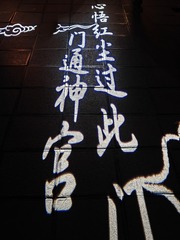 心悟红尘过此
门通神宫